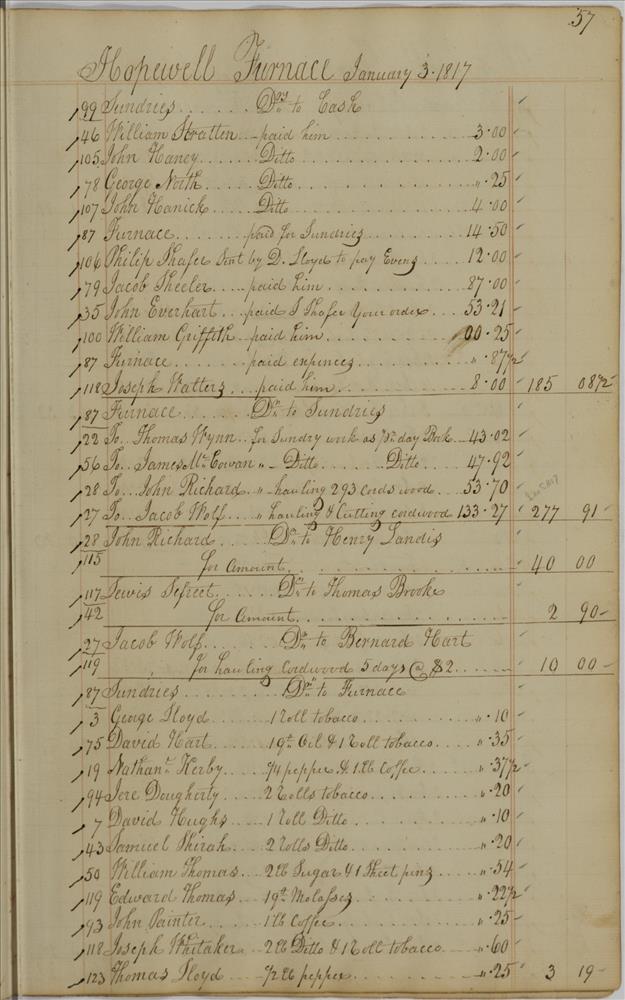 57
Hopewell Furnace January 3. 1817
99 Sundries . . . . . . Drs to Cash
46 William Stratten paid him . . . . 3.00
105 John Haney . . . . Ditto . . . . 2.00
78 George North . . . . Ditto . . . . ".25
107 John Hanick . . . . Ditto . . . . 4.00
87 Furnace . . . . paid for Sundries . . . . 14.50
106 Philip Shafer Sent by D. Lloyd to pay Evens . . 12.00
79 Jacob Sheeler . . . . paid him . . . . 87.00
35 John Everhart . . . paid J Shafer Your order . . . 53.21
100 William Griffith paid him . . . . 00.25
87 Furnace . . . . paid expences . . . . ".87½
118 Joseph Watters . . . paid him . . . . 8.00 185 08½
87 Furnace . . . . Dr. to Sundries
22 To . Thomas Wynn . . for Sundry work as pr. day Book 43.02
56 To . James McCowan " Ditto . . . . Ditto . . . 47.92
28 To . . John Richard . . " hauling 293 cords wood . . . 53.70
27 To . . Jacob Wolf . . . " hauling & Cutting cordwood 133.27 277 91
28 John Richard . . . . Dr. to Henry Landis
115 for Amount . . . . 40 00
117 Lewis Sefreet . . . . Dr. to Thomas Brooke
42 for Amount . . . . 2 90
27 Jacob Wolf . . . . Dr. to Bernard Hart
119 for hauling Cordwood 5 days @ $2 . . . . 10 00
87 Sundries . . . . Drs. to Furnace
3 George Lloyd . . . . 1 Roll tobacco . . . . ".10
75 David Hart . . . . 1 qt. Oil & 1 Roll tobacco . . . . ".35
19 Nathanl. Kerby . . . . ¼ pepper & 1 lb Coffee . . . . ".37½
94 Jere Dougherty . . . . 2 Rolls tobacco . . . . ".20
7 David Hughs . . . . 1 Roll Ditto . . . . ".10
43 Samuel Shirah . . . 2 Rolls Ditto . . . . ".20
50 William Thomas . . . 2 lb Sugar & 1 Sheet pins . . . ".54
119 Edward Thomas . . . 1 qt. Molasses . . . . ".22½
93 John Painter . . . . 1 lb Coffee . . . . ".25
118 Joseph Whitaker . . 2 lb Ditto & 1 Roll tobacco . . . ".60
123 Thomas Lloyd . . . . ½ lb pepper . . . . ".25 3 19